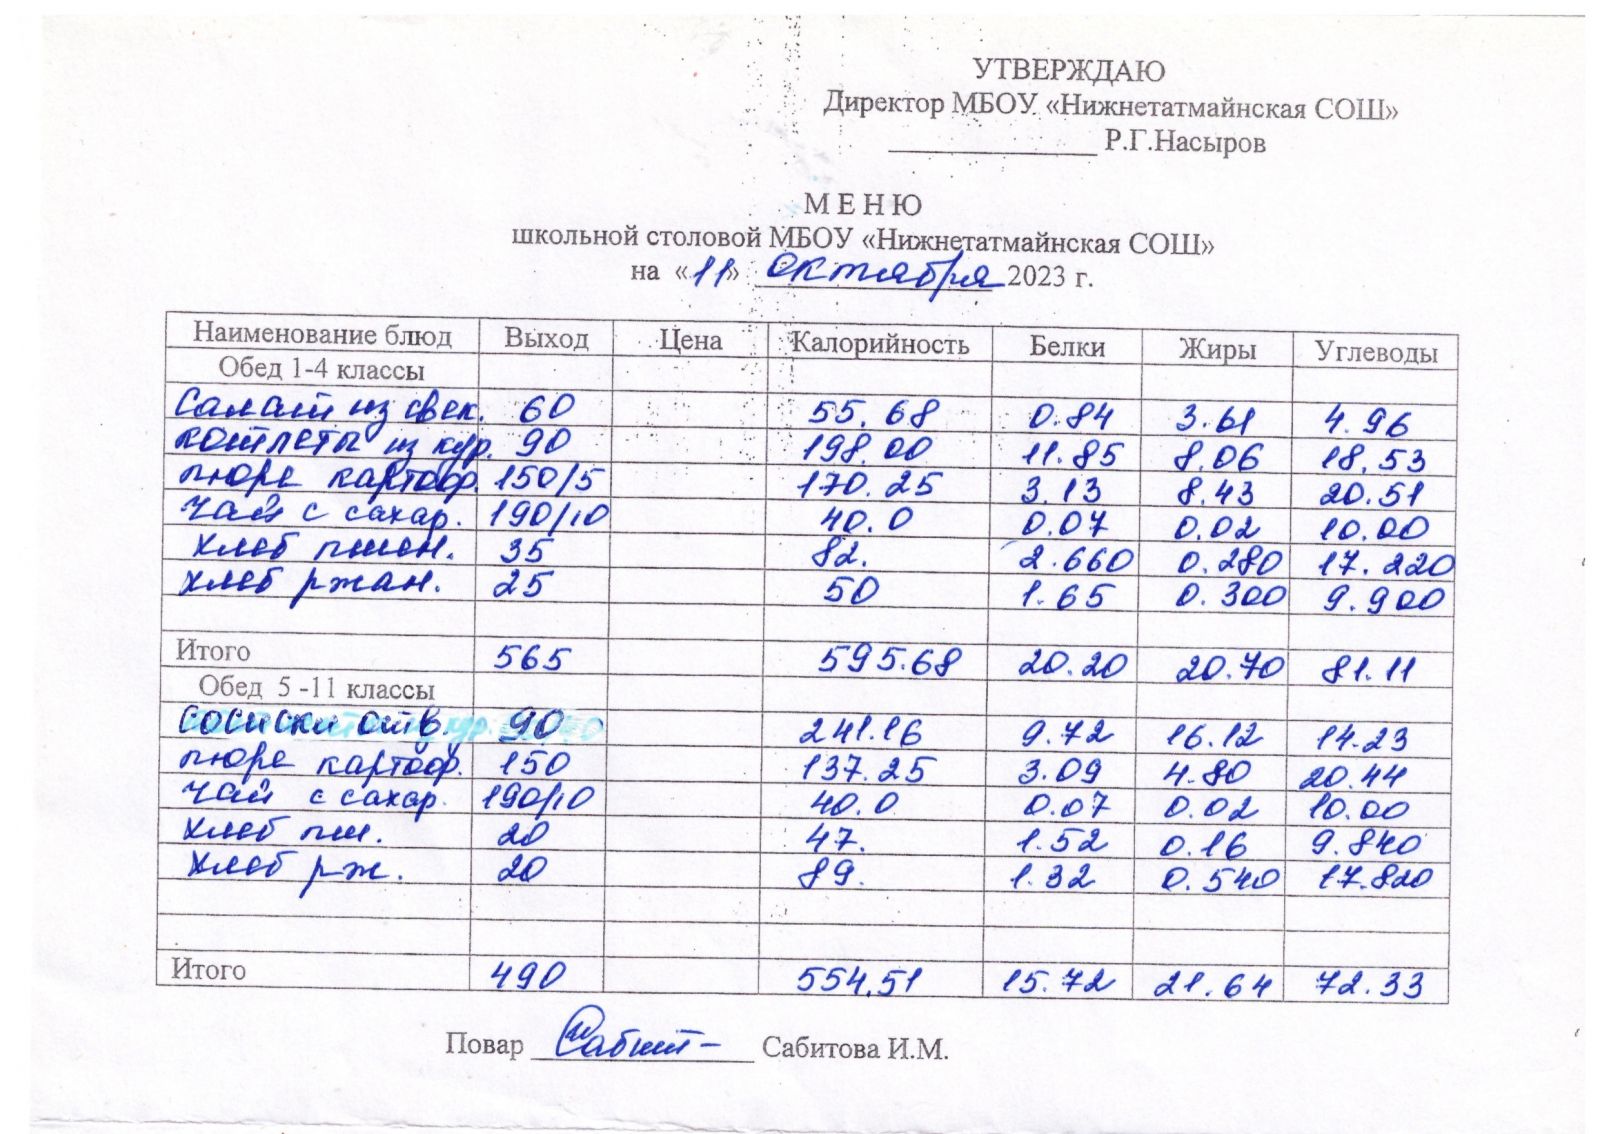 УТВЕРЖДАЮ
Директор МБОУ «Нижнетатмайнская СОШ»
Р.Г.Насыров
М Е Н Ю
школьной столовой МБОУ «Нижнетатмайнская СОШ»
на «11» октября 2023 г.
Наименование блюд Выход Цена Калорийность Белки Жиры Углеводы
Обед 1-4 классы
Салат из свек. 60 55.68 0.84 3.61 4.96
котлеты из кур. 90 198.00 11.85 8.06 18.53
пюре картоф. 150/5 170.25 3.13 8.43 20.51
Чай с сахар. 190/10 40.0 0.07 0.02 10.00
хлеб пшен. 35 82. 2.660 0.280 17.220
хлеб ржан. 25 50 1.65 0.300 9.900
Итого 565 595.68 20.20 20.70 81.11
Обед 5 -11 классы
сосиски отв. 90 241.16 9.72 16.12 14.23
пюре картоф. 150 137.25 3.09 4.80 20.44
чай с сахар. 190/10 40.0 0.07 0.02 10.00
хлеб пш. 20 47. 1.52 0.16 9.840
хлеб рж. 20 89. 1.32 0.540 17.820
Итого 490 554,51 15.72 21.64 72.33
Повар Сабит Сабитова И.М.